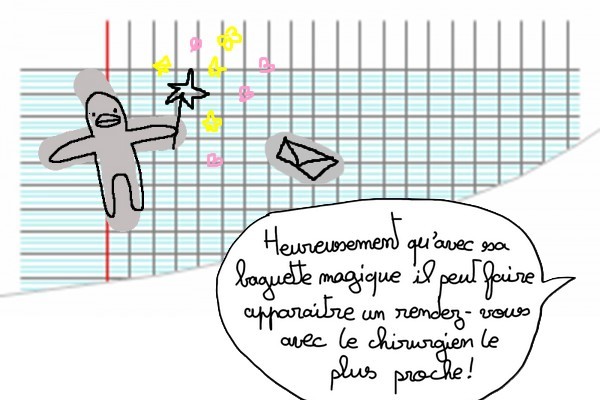 Heureusement qu'avec sa
baguette magique il peut faire
apparaitre un rendez-vous
avec le chirurgien le
plus proche!